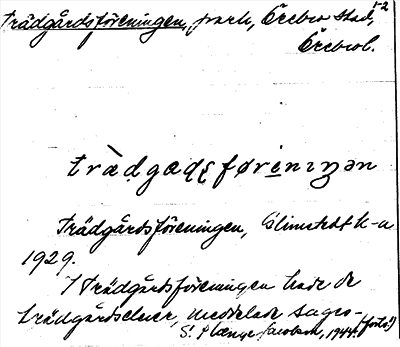 Trädgårdsföreningen, park, Örebro stad, 1-2
Örebrol.
trädgaḍsførenıŋən
Trädgårdsföreningen, Glimstedt K-a
1929.
I Trädgårdsföreningen hade de
trädgårdselever, meddelade sages-
S. Plænge Jacobson, 1944. (forts.)